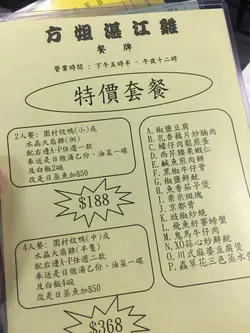 方姐湛江雞
餐牌
營業時間：下午五時半－午夜十二時
特價套餐
2人餐：圍村炆鴨(小)或
水晶大扇雞(例)
配右邊A-P任選二款
奉送是日燉湯乙份、油菜一碟
及白飯2碗
改是日蒸魚加$50
$188
4人餐：圍村炆鴨(中)或
水晶大扇雞(半隻)
配右邊A-P任選二款
奉送是日燉湯乙份、油菜一碟
及白飯4碗
改是日蒸魚加$50
$368
A.椒鹽豆腐
B.乳香藕片炒腩肉
C.蠔仔肉鬆煎蛋
D.西芹臻果蝦仁
E.鹹魚煎肉餅
F.黑椒牛仔骨
G.椒鹽鮮魷
H.魚香茄子煲
I.粟米斑塊
J.京都骨
K.豉椒炒蜆
L.飛魚籽賽螃蟹
M.飛馬牛仔肉
N.XO菜心炒鮮魷
O.川式麻婆豆腐煲
P.蟲草花三色蒸水蛋